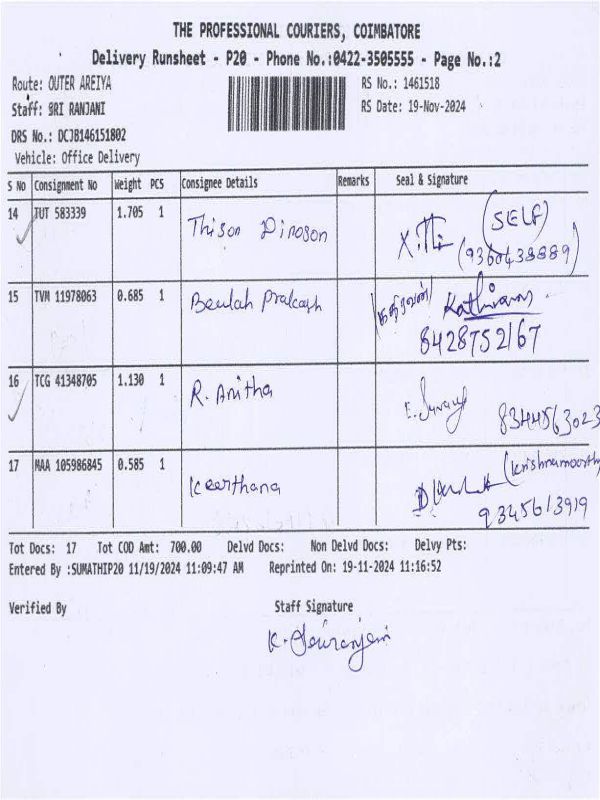 THE PROFESSIONAL COURIERS, COIMBATORE
Delivery Runsheet - P20 - Phone No.:0422-3505555 - Page No.:2
Route: OUTER AREIYA
RS No.: 1461518
Staff: SRI RANJANI
RS Date: 19-Nov-2024
DRS No.: DCJB146151802
Vehicle: Office Delivery
S No Consignment No Weight PCS Consignee Details Remarks Seal & Signature
14 TUT 583339 1.705 1 Thison Dinoson (SELF)
15 TVM 11978063 0.685 1 Beulah Prakash (கதிரவன்) Kathiravan
8428752167
16 TCG 41348705 1.130 1 R. Anitha
8344563023
17 MAA 105986845 0.585 1 Keerthana (Krishnamoorthy
9345613919
Tot Docs: 17 Tot COD Amt: 700.00 Delvd Docs: Non Delvd Docs: Delvy Pts:
Entered By :SUMATHIP20 11/19/2024 11:09:47 AM Reprinted On: 19-11-2024 11:16:52
Verified By Staff Signature